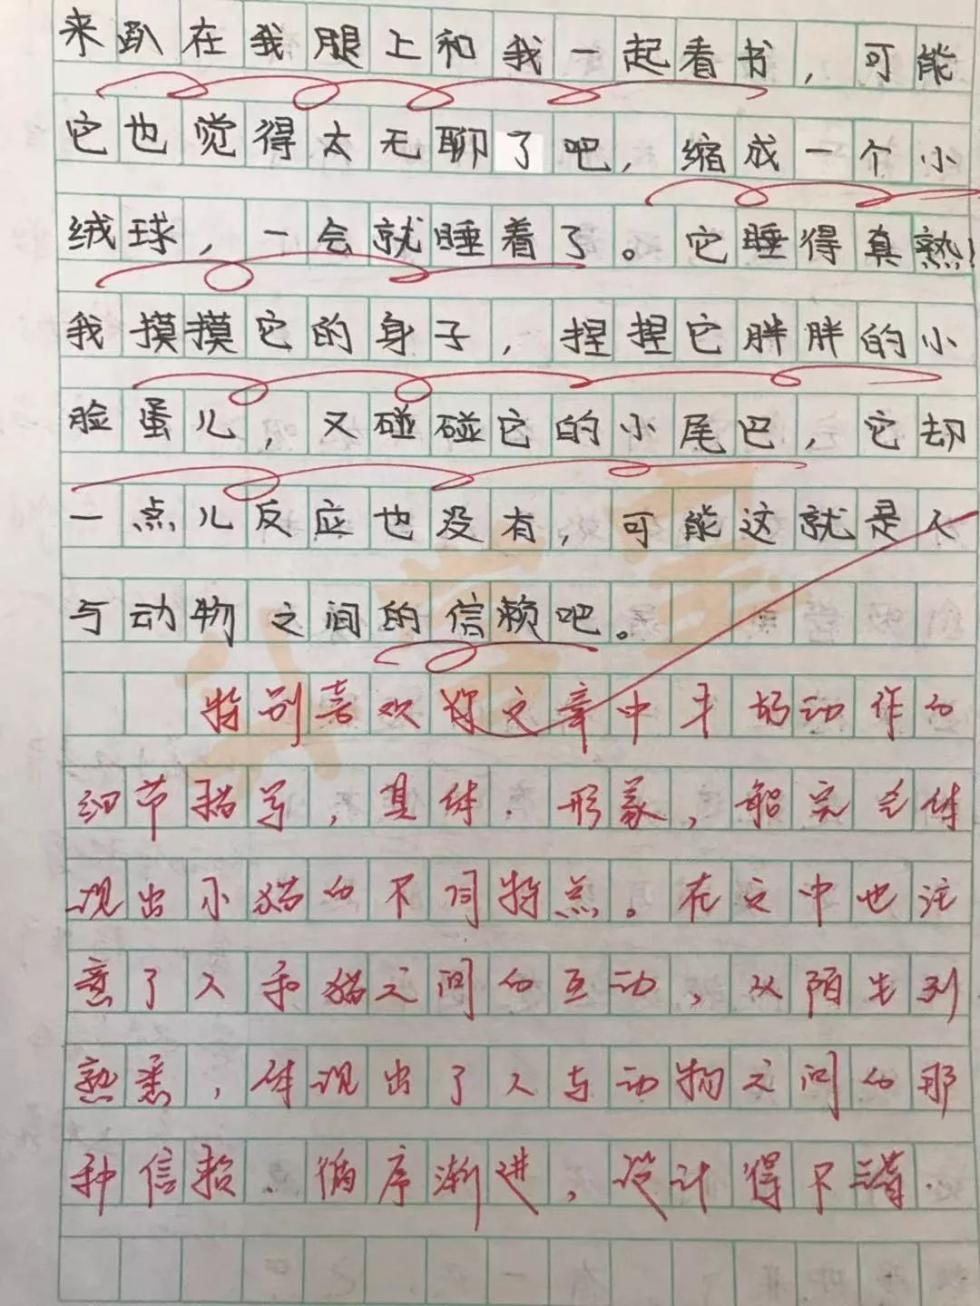 来趴在我腿上和我一起看书，可能
它也觉得太无聊了吧，缩成一个小
绒球，一会就睡着了。它睡得真熟！
我摸摸它的身子，捏捏它胖胖的小
脸蛋儿，又碰碰它的小尾巴，它却
一点儿反应也没有，可能这就是人
与动物之间的信赖吧。
特别喜欢你文章中才的动作的
细节描写，具体．形象，能完全体
现出小猫的不同特点。在文中也注
意了人和猫之间的互动，从陌生到
熟悉，体现出了人与动物之间的那
种信赖．循序渐进，设计得不错．